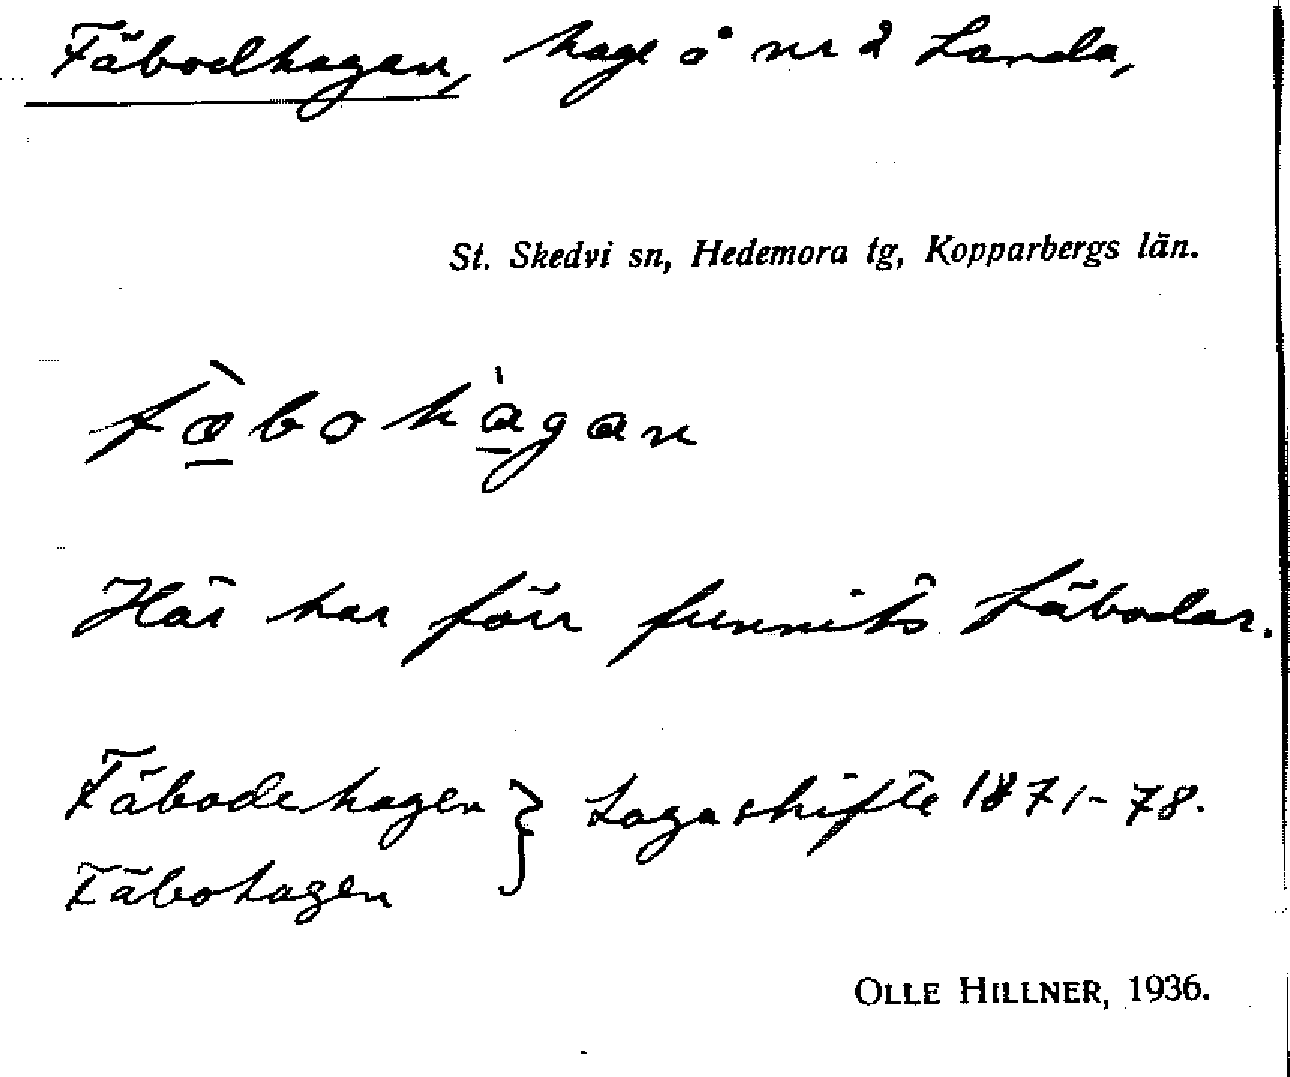 Fäbodhagen, hage å nr 2 Landa,
St. Skedvi sn, Hedemora tg, Kopparbergs län.
fæ̀bohàgan
Här har förr funnits fäbodar.
Fäbodehagen } Laga skifte 1871-78.
Fäbohagen
OLLE HILLNER, 1936.